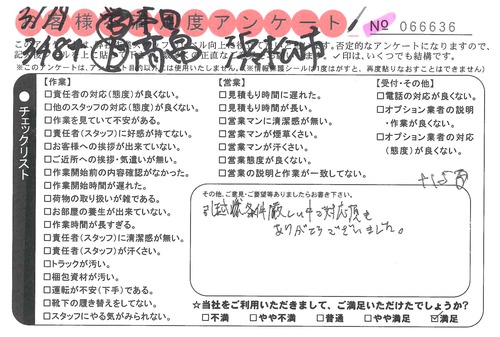 お客様満足度アンケート
No 066636
※このアンケートは、アンケート目的以外では使用いたしません。※情報保護シールは1度はがすと、再度貼りなおすことはできません。
チェックリスト
【作業】
□責任者の対応(態度)が良くない。
□他のスタッフの対応(態度)が良くない。
□作業を見ていて不安がある。
□責任者(スタッフ)に好感が持てない。
□お客様への挨拶が出来ていない。
□ご近所への挨拶・気遣いが無い。
□作業開始前の内容確認がなかった。
□作業開始時間が遅れた。
□荷物の取り扱いが雑である。
□お部屋の養生が出来ていない。
□作業時間が長すぎる。
□責任者(スタッフ)に清潔感が無い。
□責任者(スタッフ)が汗くさい。
□トラックが汚い。
□梱包資材が汚い。
□運転が不安(下手)である。
□靴下の履き替えをしてない。
□スタッフにやる気がみられない。
【営業】
□見積もり時間に遅れた。
□見積もり時間が長い。
□営業マンに清潔感が無い。
□営業マンが煙草くさい。
□営業マンが汗くさい。
□営業態度が良くない。
□営業の説明と作業が一致してない。
【受付・その他】
□電話の対応が良くない。
□オプション業者の説明
・作業が良くない。
□オプション業者の対応
(態度)が良くない。
その他、ご意見・ご要望等ありましたらお書き下さい。
引越業条件厳しい中で対応頂き
ありがとうございました。
☆当社をご利用いただきまして、ご満足いただけたでしょうか?
□不満 □やや不満 □普通 □やや満足 ☑満足